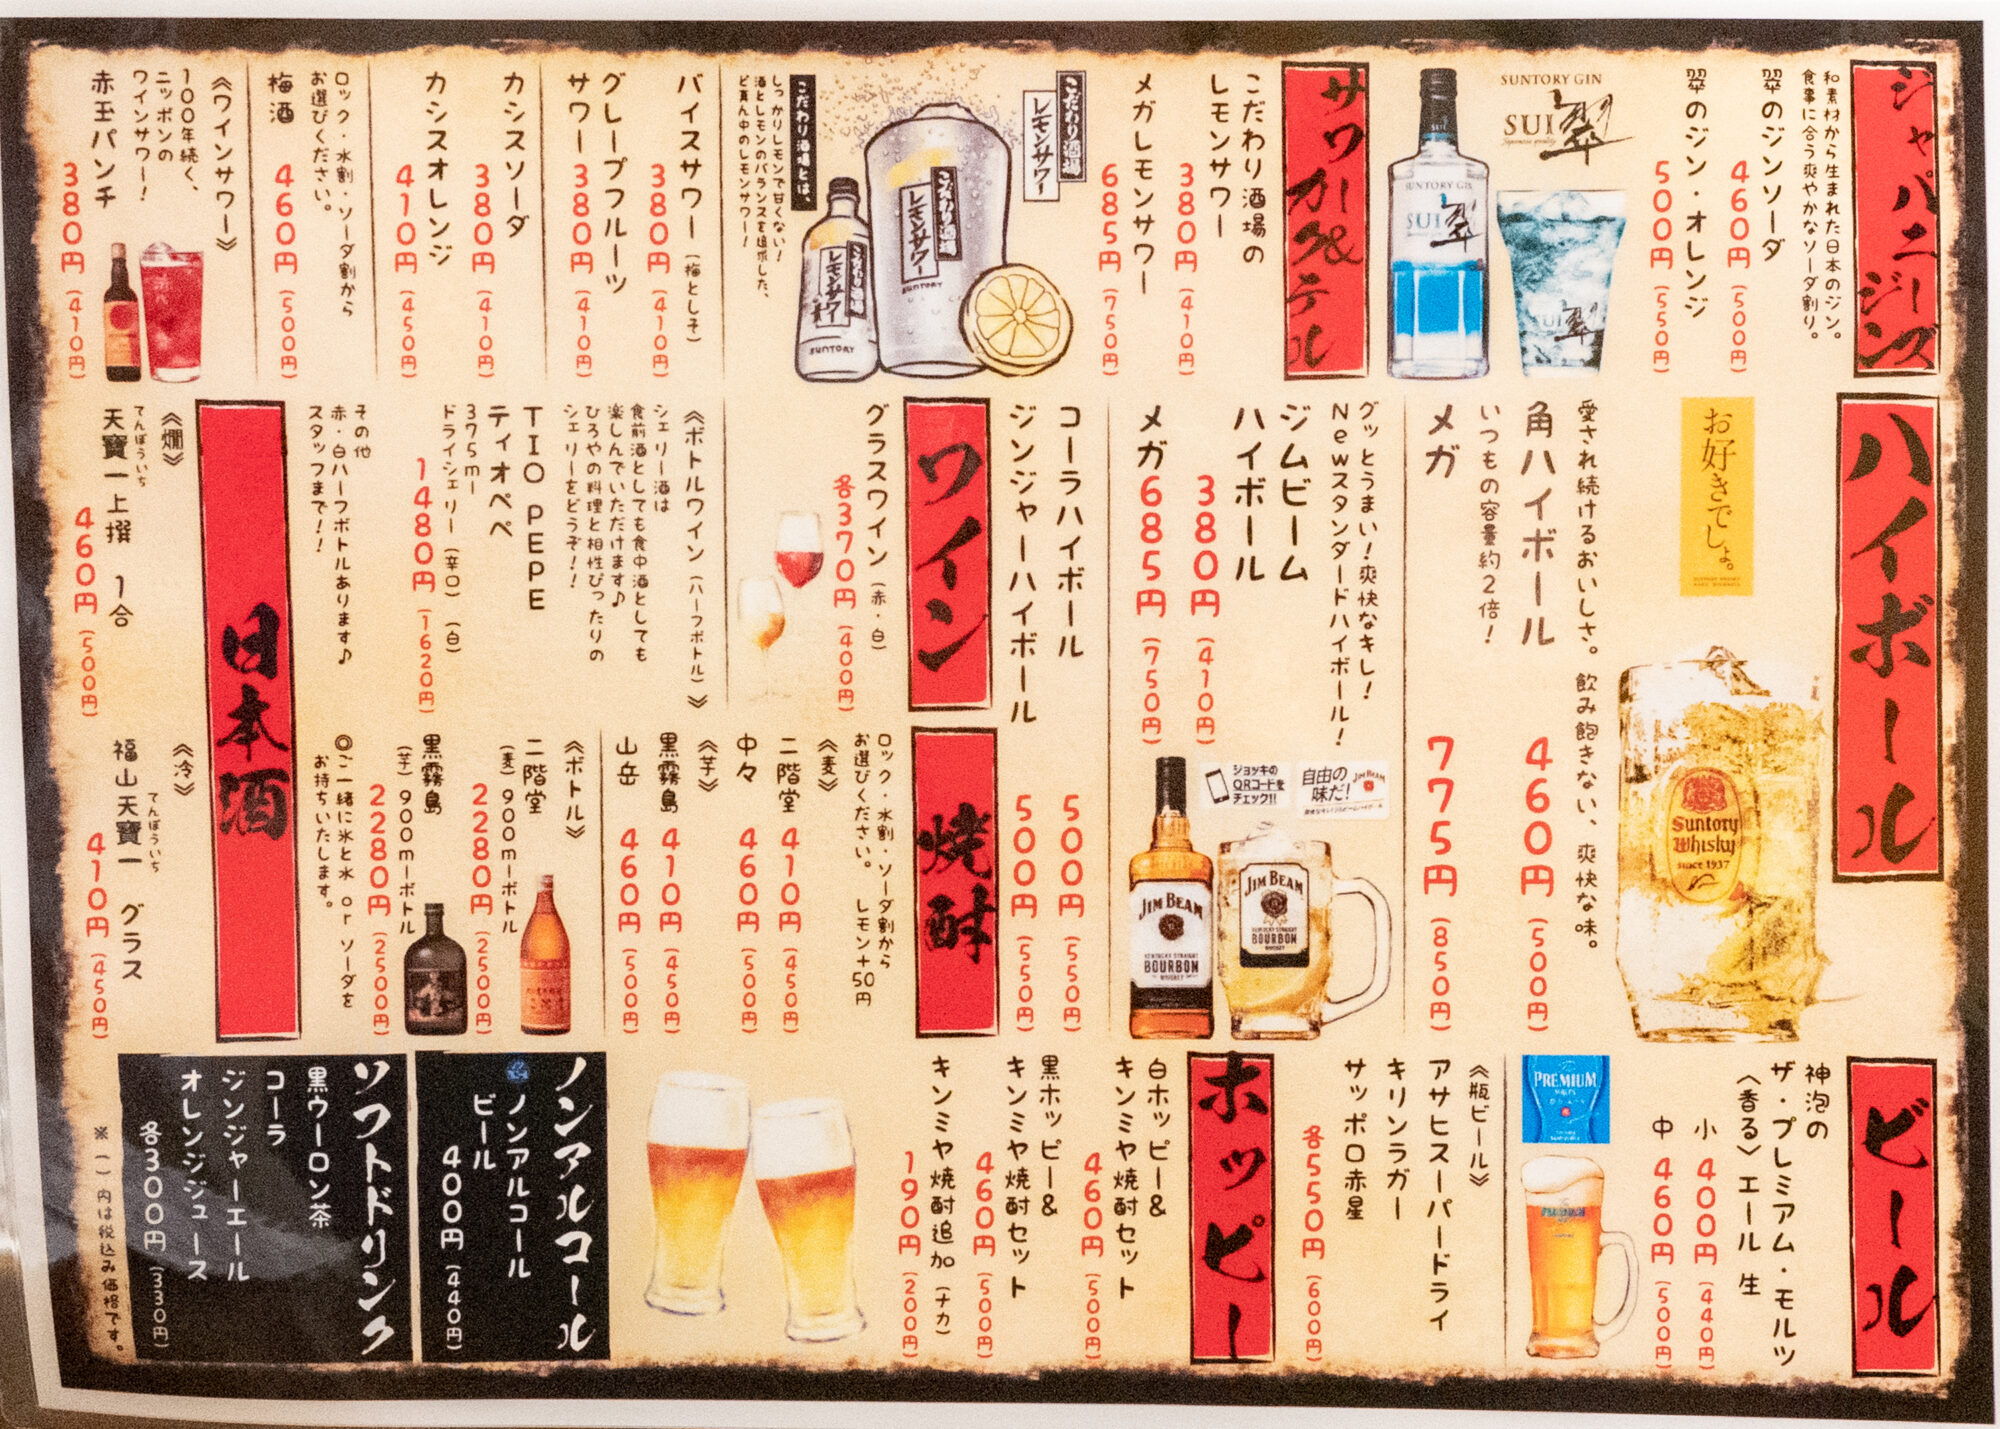 ジャパニーズジン
和素材から生まれた日本のジン。
食事に合う爽やかなソーダ割り。
翠のジンソーダ
460円(500円)
翠のジン・オレンジ
500円(550円)
SUNTORY GIN
SUI 翠
Japanese quality
SUNTORY GIN
SUI 翠
SUI 翠
サワー&カクテル
こだわり酒場の
レモンサワー
380円(410円)
メガレモンサワー
685円(750円)
こだわり酒場
レモンサワー
こだわり酒場
レモンサワー
SUNTORY
こだわり酒場
レモンサワー
SUNTORY
こだわり酒場とは、
しっかりレモンで甘くない!
酒とレモンのバランスを追求した、
ど真ん中のレモンサワー!
バイスサワー(梅としそ)
380円(410円)
グレープフルーツ
サワー
380円(410円)
カシスソーダ
380円(410円)
カシスオレンジ
410円(450円)
ロック・水割・ソーダ割から
お選びください。
梅酒
460円(500円)
《ワインサワー》
100年続く、
ニッポンの
ワインサワー!
赤玉パンチ
380円(410円)
ハイボール
お好きでしょ。
愛され続けるおいしさ。飲み飽きない、爽快な味。
角ハイボール
460円(500円)
いつもの容量約2倍!
メガ
775円(850円)
Suntory
Whisky
since 1937
グッとうまい!爽快なキレ!
Newスタンダードハイボール!
ジムビーム
ハイボール
380円(410円)
メガ685円(750円)
ジョッキの
QRコードを
チェック!!
自由の
味だ!
JIM BEAM
JIM BEAM
KENTUCKY STRAIGHT
BOURBON
WHISKEY
JIM BEAM
KENTUCKY STRAIGHT
BOURBON
WHISKEY
コーラハイボール
500円(550円)
ジンジャーハイボール
500円(550円)
ワイン
グラスワイン(赤・白)
各370円(400円)
《ボトルワイン(ハーフボトル)》
シェリー酒は
食前酒としても食中酒としても
楽しんでいただけます♪
ひろやの料理と相性ぴったりの
シェリーをどうぞ!!
TIO PEPE
ティオペペ
375ml
ドライシェリー(辛口)(白)
1480円(1620円)
その他
赤・白ハーフボトルあります♪
スタッフまで!!
焼酎
ロック・水割・ソーダ割から
お選びください。 レモン+50円
《麦》
二階堂 410円(450円)
中々 460円(500円)
《芋》
黒霧島 410円(450円)
山岳 460円(500円)
《ボトル》
二階堂
(麦)900mlボトル
2280円(2500円)
黒霧島
(芋)900mlボトル
2280円(2500円)
◎ご一緒に氷と水 or ソーダを
お持ちいたします。
日本酒
《燗》
てんぽういち
天寶一上撰 1合
460円(500円)
《冷》
てんぽういち
福山天寶一 グラス
410円(450円)
ビール
神泡の
ザ・プレミアム・モルツ
〈香る〉エール 生
小 400円(440円)
中 460円(500円)
PREMIUM
《瓶ビール》
アサヒスーパードライ
キリンラガー
サッポロ赤星
各550円(600円)
ホッピー
白ホッピー&
キンミヤ焼酎セット
460円(500円)
黒ホッピー&
キンミヤ焼酎セット
460円(500円)
キンミヤ焼酎追加(ナカ)
190円(200円)
ノンアルコール
ノンアルコール
ビール
400円(440円)
ソフトドリンク
黒ウーロン茶
コーラ
ジンジャーエール
オレンジジュース
各300円(330円)
※( )内は税込み価格です。